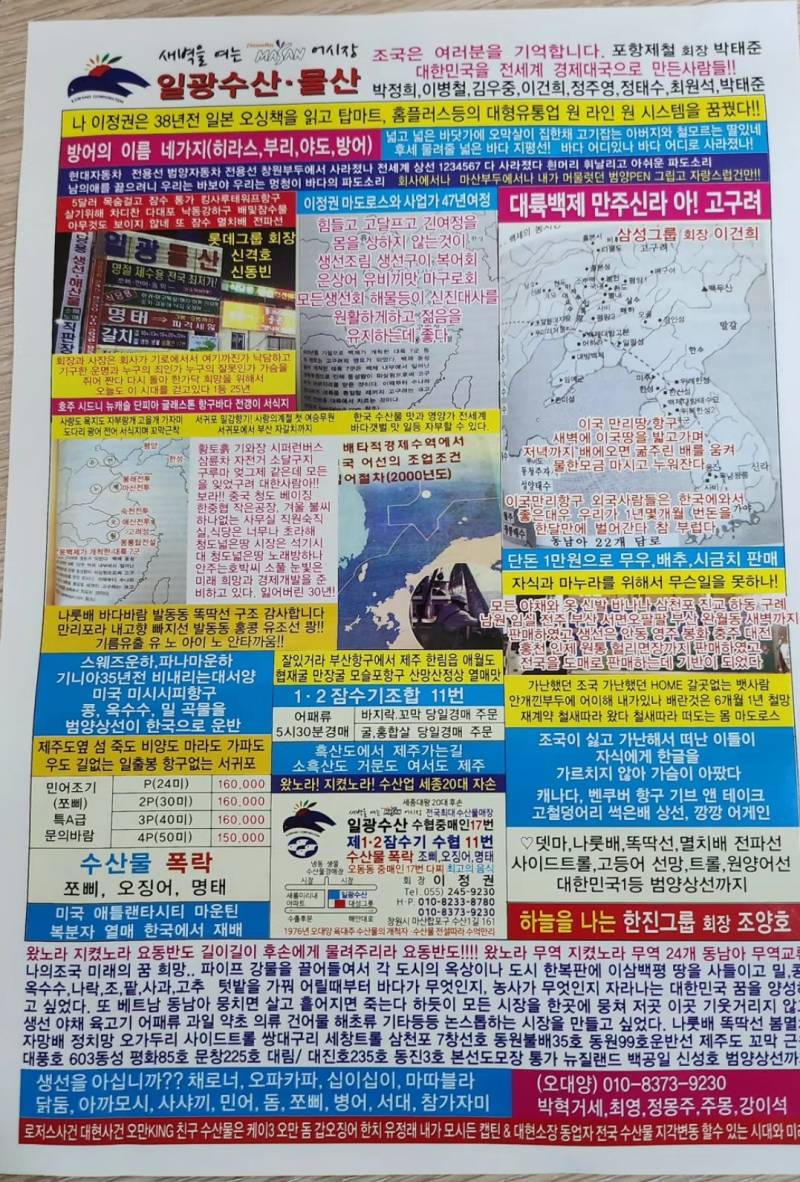 새벽을 여는 MASAN 어시장
일광수산·물산
조국은 여러분을 기억합니다. 포항제철 회장 박태준
대한민국을 전세계 경제대국으로 만든사람들!!
박정희,이병철,김우중,이건희,정주영,정태수,최원석,박태준
나 이정권은 38년전 일본 오싱책을 읽고 탑마트, 홈플러스등의 대형유통업 원 라인 원 시스템을 꿈꿨다!!
방어의 이름 네가지(히라스,부리,야도,방어)
넓고 넓은 바닷가에 오막살이 집한채 고기잡는 아버지와 철모르는 딸있네
후세 물려줄 넓은 바다 지평선! 바다 어디있나 바다 어디로 사라졌나!
현대자동차 전용선 범양자동차 전용선 창원부두에서 사라졌나 전세계 상선 1234567 다 사라졌다 흰머리 휘날리고 아쉬운 파도소리
남의애를 끓으려니 우리는 바보야 우리는 멍청이 바다의 파도소리 회사에서나 마산부두에서나 내가 머물렀던 범양PEN 그립고 자랑스럽건만!!
5달러 목숨걸고 잠수 통가 킹사루테워프항구
살기위해 차디찬 다대포 낙동강하구 배밑잠수물
아무것도 보이지 않네 또 잠수 멸치배 전파선
일광물산
롯데그룹 회장
신격호
신동빈
명절 제수용 전국 최저가!
명태
갈치
직판장
회장과 사장은 회사가 기로에서서 여기까진가 낙담하고
기구한 운명과 누구의 죄인가 누구의 잘못인가 가슴을
쥐어 짠다 다시 돌아 한가닥 희망을 위해서
오늘도 이 시대를 걷고있다 1등 25년
호주 시드니 뉴캐슬 단피아 글래스톤 항구바다 전갱이 서식지
이정권 마도로스와 사업가 47년여정
힘들고 고달프고 긴여정을
몸을 상하지 않는것이
생선조림 생선구이 복어회
은상어 유비끼맛 마구로회
모든생선회 해물등이 신진대사를
원활하게하고 젊음을
유지하는데 좋다
대륙백제 만주신라 아! 고구려
삼성그룹 회장 이건희
고구려
백두산
말갈
신라
가야
이국 만리땅 항구
새벽에 이국땅을 밟고가며
저녁까지 배에오면 굶주린 배를 움켜
물한모금 마시고 누워잔다
이국만리항구 외국사람들은 한국에와서
좋은대우, 우리가 1년몇개월 번돈을
한달만에 벌어간다 참 부럽다
동남아 22개 담로
사랑도 욕지도 자부랑개 고을개 가자미
도다리 광어 전어 서식지며 꼬막근착
서귀포 밀감향기! 사랑의계절 첫 여승무원
서귀포에서 부산 자갈치까지
한국 수산물 맛과 영양가 전세계
바다갯벌 맛 일등 자부할 수 있다.
황토흙 기와장 시퍼런버스
삼륜차 자전거 소달구지
구루마 엊그제 같은데 모든
을 잊었구려 대한사람아!!
보라!! 중국 청도 베이징
한중협 작은공장, 겨울 불씨
하나없는 사무실 직원숙직
실,식당은 너무나 초라해
청도넓은땅 시장은 석기시
대 청도넓은땅 노래방하나
안주는호박씨 소물 눈빛은
미래 희망과 경제개발을 준
비하고 있다. 잃어버린 30년!
배타적경제수역에서
국 어선의 조업조건
업어절차(2000년도)
단돈 1만원으로 무우,배추,시금치 판매
자식과 마누라를 위해서 무슨일을 못하나!
모든 야채와 옷 신발 바나나 삼천포 진교 하동 구례
남원 임실 전주 부산 서면오팔팔 부산 완월동 새벽까지
판매하였고 생선은 안동 영주 봉화 충주 대전
홍천 인제 원통 헐리면장까지 판매하였고
전국을 도매로 판매하는데 기반이 되었다
나룻배 바다바람 발동동 똑딱선 구조 감사합니다
만리포라 내고향 빠지선 발동동 홍콩 유조선 쾅!!
기름유출 유 노 아이 노 안타까움!!
스웨즈운하,파나마운하
기니아35년전 비내리는대서양
미국 미시시피항구
콩, 옥수수, 밀 곡물을
범양상선이 한국으로 운반
제주도옆 섬 죽도 비양도 마라도 가파도
우도 길없는 일출봉 항구없는 서귀포
잘있거라 부산항구에서 제주 한림읍 애월도
협재굴 만장굴 모슬포항구 산망산정상 열매맛
1·2 잠수기조합 11번
어패류 바지락.꼬막 당일경매 주문
5시30분경매 굴,홍합살 당일경매 주문
흑산도에서 제주가는길
소흑산도 거문도 여서도 제주
왔노라! 지켰노라! 수산업 세종20대 자손
가난했던 조국 가난했던 HOME 갈곳없는 뱃사람
안개낀부두에 어이해 내가있나 배란것은 6개월 1년 철망
재계약 철새따라 왔다 철새따라 떠도는 몸 마도로스
조국이 싫고 가난해서 떠난 이들이
자식에게 한글을
가르치지 않아 가슴이 아팠다
캐나다, 벤쿠버 항구 기브 앤 테이크
고철덩어리 썩은배 상선, 깡깡 어게인
민어조기 P(24미) 160,000
(쪼삐) 2P(30미) 160,000
특A급 3P(40미) 160,000
문의바람 4P(50미) 150,000
수산물 폭락
쪼삐, 오징어, 명태
미국 애틀랜타시티 마운틴
복분자 열매 한국에서 재배
세종대왕 20대 후손
새벽을 여는 MASAN 전국최대 수산물매장
일광수산 수협중매인17번
제1·2잠수기 수협 11번
수산물 폭락 조삐,오징어,명태
오동동 중매인 17번 다찌 최고의 음식
냉동·생물
수산물경매장
시장
시장
새롬미리내
아파트
일광수산
대성그룹
수출후문
해안대로
회장 이정권
Tel. 055) 245-9230
H·P. 010-8233-8780
010-8373-9230
창원시 마산합포구 수산1길 161
1976년 오대양 육대주 수산물의 개척자 · 수산물 전설따라 수억만리
♡뎃마,나룻배,똑딱선,멸치배 전파선
사이드트롤,고등어 선망,트롤,원양어선
대한민국1등 범양상선까지
하늘을 나는 한진그룹 회장 조양호
왔노라 지켰노라 요동반도 길이길이 후손에게 물려주리라 요동반도!!!! 왔노라 무역 지켰노라 무역 24개 동남아 무역교
나의조국 미래의 꿈 희망.. 파이프 강물을 끌어들여서 각 도시의 옥상이나 도시 한복판에 이삼백평 땅을 사들이고 밀,콩
옥수수,나락,조,팥,사과,고추 텃밭을 가꿔 어릴때부터 바다가 무엇인지, 농사가 무엇인지 자라나는 대한민국 꿈을 양성하
고 싶었다. 또 베트남 동남아 뭉치면 살고 흩어지면 죽는다 하듯이 모든 시장을 한곳에 뭉쳐 저곳 이곳 기웃거리지 않
생선 야채 육고기 어패류 과일 약초 의류 건어물 해초류 기타등등 논스톱하는 시장을 만들고 싶었다. 나룻배 똑딱선 봄멸
자망배 정치망 오가두리 사이드트롤 쌍대구리 세창트롤 삼천포 7창선호 동원불배35호 동원99호운반선 제주도 꼬막 근
대풍호 603동성 평화85호 문창225호 대림/ 대진호235호 동진3호 본선도모장 통가 뉴질랜드 백공일 신성호 범양상선까
생선을 아십니까?? 채로너, 오파카파, 십이십이, 마따블라
닭돔, 아까모시, 사샤끼, 민어, 돔, 쪼삐, 병어, 서대, 참가자미
(오대양) 010-8373-9230
박혁거세,최영,정몽주,주몽,강이석
로저스사건 대현사건 오만KING 친구 수산물은 케이3 오만 돔 갑오징어 한치 유정래 내가 모시든 캡틴 & 대현소장 동업자 전국 수산물 지각변동 할수 있는 시대와